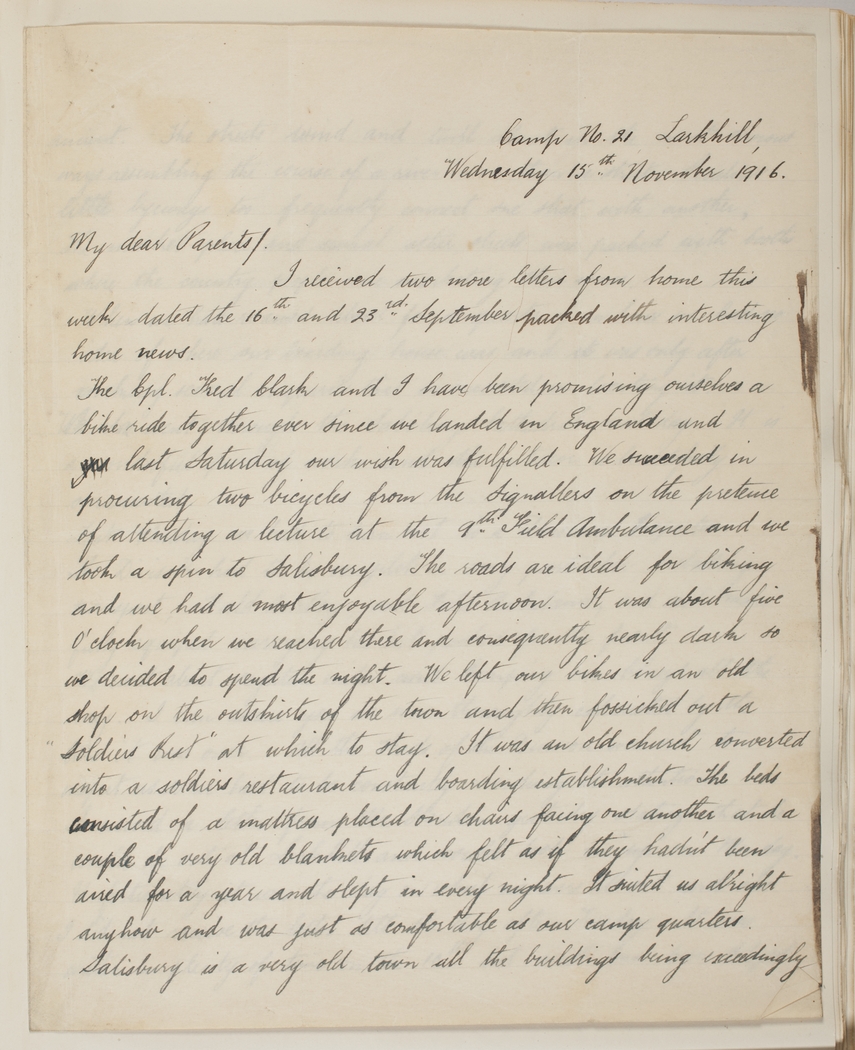 Camp No. 21 Larkhill,
Wednesday 15th November 1916.
My dear Parents/.
I received two more letters from home this
week dated the 16th and 23rd September packed with interesting
home news.
The Cpl. Fred Clark and I have been promising ourselves a
bike ride together ever since we landed in England and
last Saturday our wish was fulfilled. We succeeded in
procuring two bicycles from the Signallers on the pretence
of attending a lecture at the 9th Field Ambulance and we
took a spin to Salisbury. The roads are ideal for biking
and we had a most enjoyable afternoon. It was about five
O'clock when we reached there and consequently nearly dark so
we decided to spend the night. We left our bikes in an old
shop on the outskirts of the town and then fossicked out a
"Soldiers Rest" at which to stay. It was an old church converted
into a soldiers restaurant and boarding establishment. The beds
consisted of a mattress placed on chairs facing one another and a
couple of very old blankets which felt as if they hadn't been
aired for a year and slept in every night. It suited us alright
anyhow and was just as comfortable as our camp quarters.
Salisbury is a very old town all the buildings being exceedingly